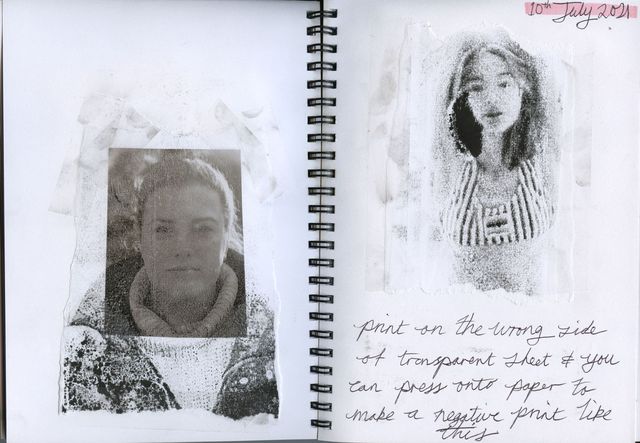 10th July 2021
print on the wrong side
of transparent sheet & you
can press onto paper to
make a negative print like
this